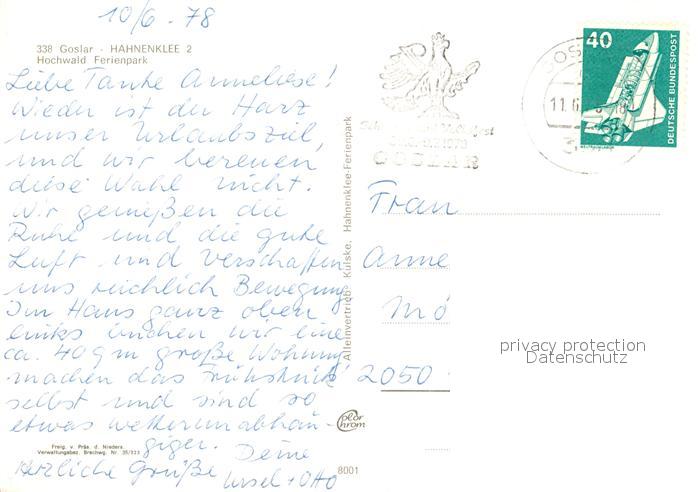 10/6.78
338 Goslar - HAHNENKLEE 2
Hochwald Ferienpark
Liebe Tante Anneliese!
Wieder ist der Harz
unser Urlaubsziel,
und wir bereuen
diese Wahl nicht.
Wir genießen die
Ruhe und die gute
Luft und verschaffen
uns reichlich Bewegung
Im Haus ganz oben
links haben wir eine
ca. 40 qm große Wohnung
machen das Frühstück
selbst und sind so
etwas wetterunabhän-
giger. Deine
Herzliche Grüße
Ursel + Otto
Freig. v. Präs. d. Nieders.
Verwaltungsbez. Brschwg. Nr. 35/323
Alleinvertrieb: Kulske, Hahnenklee-Ferienpark
color
chrom
8001
GOSLAR
11.6.
40
DEUTSCHE BUNDESPOST
Frau
Anne
Mö
2050
privacy protection
Datenschutz